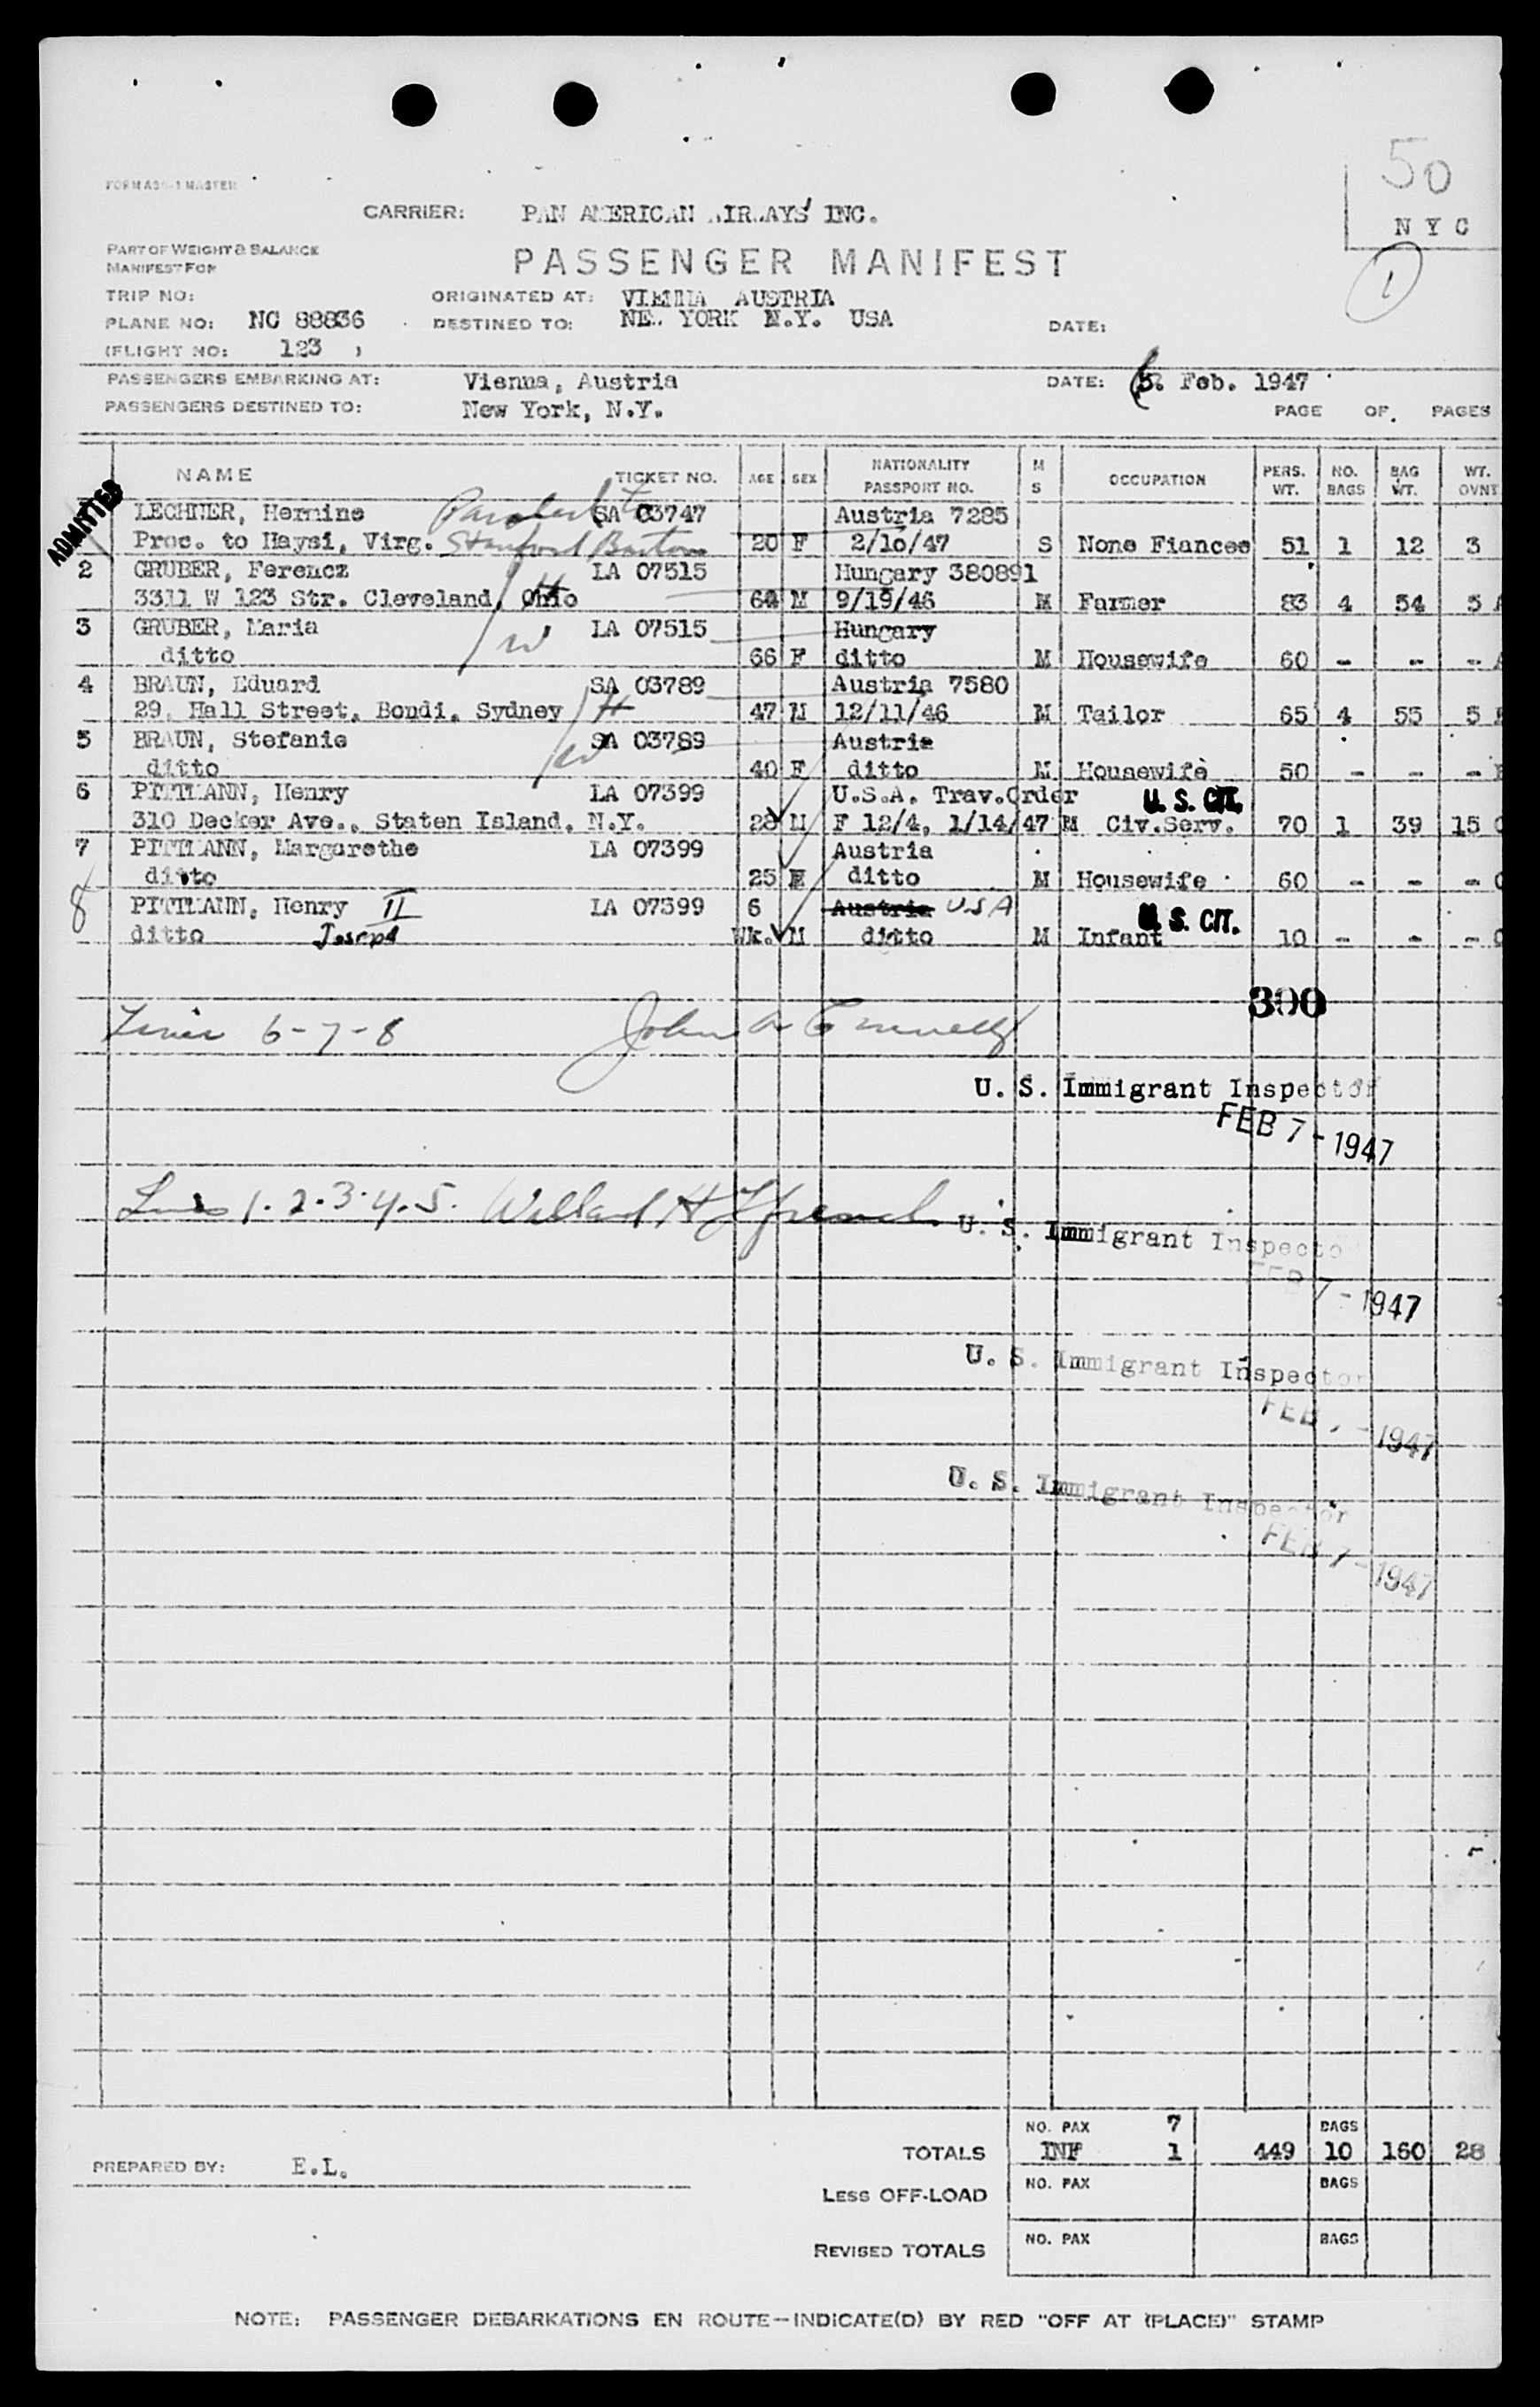 50
N Y C
1
CARRIER: PAN AMERICAN AIRWAYS INC.
PART OF WEIGHT & BALANCE
MANIFEST FOR
PASSENGER MANIFEST
TRIP NO: ORIGINATED AT: VIENNA AUSTRIA
PLANE NO: NC 88836 DESTINED TO: NEW YORK N.Y. USA DATE:
(FLIGHT NO: 123 )
PASSENGERS EMBARKING AT: Vienna, Austria DATE: Feb. 1947
PASSENGERS DESTINED TO: New York, N.Y. PAGE OF PAGES
NAME TICKET NO. AGE SEX NATIONALITY PASSPORT NO. M S OCCUPATION PERS. WT. NO. BAGS BAG WT. WT. OVNT
ADMITTED
LECHNER, Hermine SA 03747 Austria 7285
Proc. to Haysi, Virg. Stanford Barton 20 F 2/10/47 S None Fiancee 51 1 12 3
2 GRUBER, Ferencz LA 07515 Hungary 380891
3311 W 123 Str. Cleveland, Ohio 64 M 9/19/46 M Farmer 83 4 54 5
3 GRUBER, Maria LA 07515 Hungary
ditto W 66 F ditto M Housewife 60 - - -
4 BRAUN, Eduard SA 03789 Austria 7580
29, Hall Street, Bondi, Sydney H 47 M 12/11/46 M Tailor 65 4 55 5
5 BRAUN, Stefanie SA 03789 Austria
ditto W 40 F ditto M Housewife 50 - - -
6 PITTMANN, Henry LA 07399 U.S.A. Trav.Order U. S. CIT.
310 Decker Ave., Staten Island, N.Y. 28 M F 12/4, 1/14/47 M Civ.Serv. 70 1 39 15
7 PITTMANN, Margarethe LA 07399 Austria
ditto 25 F ditto M Housewife 60 - - -
8 PITTMANN, Henry II LA 07399 6 Austria USA U. S. CIT.
ditto Joseph Wk. M ditto M Infant 10 - - -
300
Lines 6-7-8
U. S. Immigrant Inspector
FEB 7 - 1947
Lines 1.2.3.4.5. Willard H
U. S. Immigrant Inspector
FEB 7 - 1947
U. S. Immigrant Inspector
FEB 7 - 1947
U. S. Immigrant Inspector
FEB 7 - 1947
NO. PAX 7 BAGS
TOTALS INF 1 449 10 160 28
PREPARED BY: E.L.
LESS OFF-LOAD NO. PAX BAGS
REVISED TOTALS NO. PAX BAGS
NOTE: PASSENGER DEBARKATIONS EN ROUTE—INDICATE(D) BY RED "OFF AT (PLACE)" STAMP